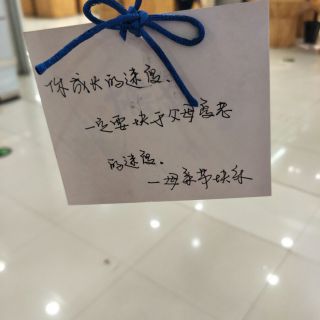 你成长的速度、
一定要快于父母衰老
的速度.
—母亲节快乐